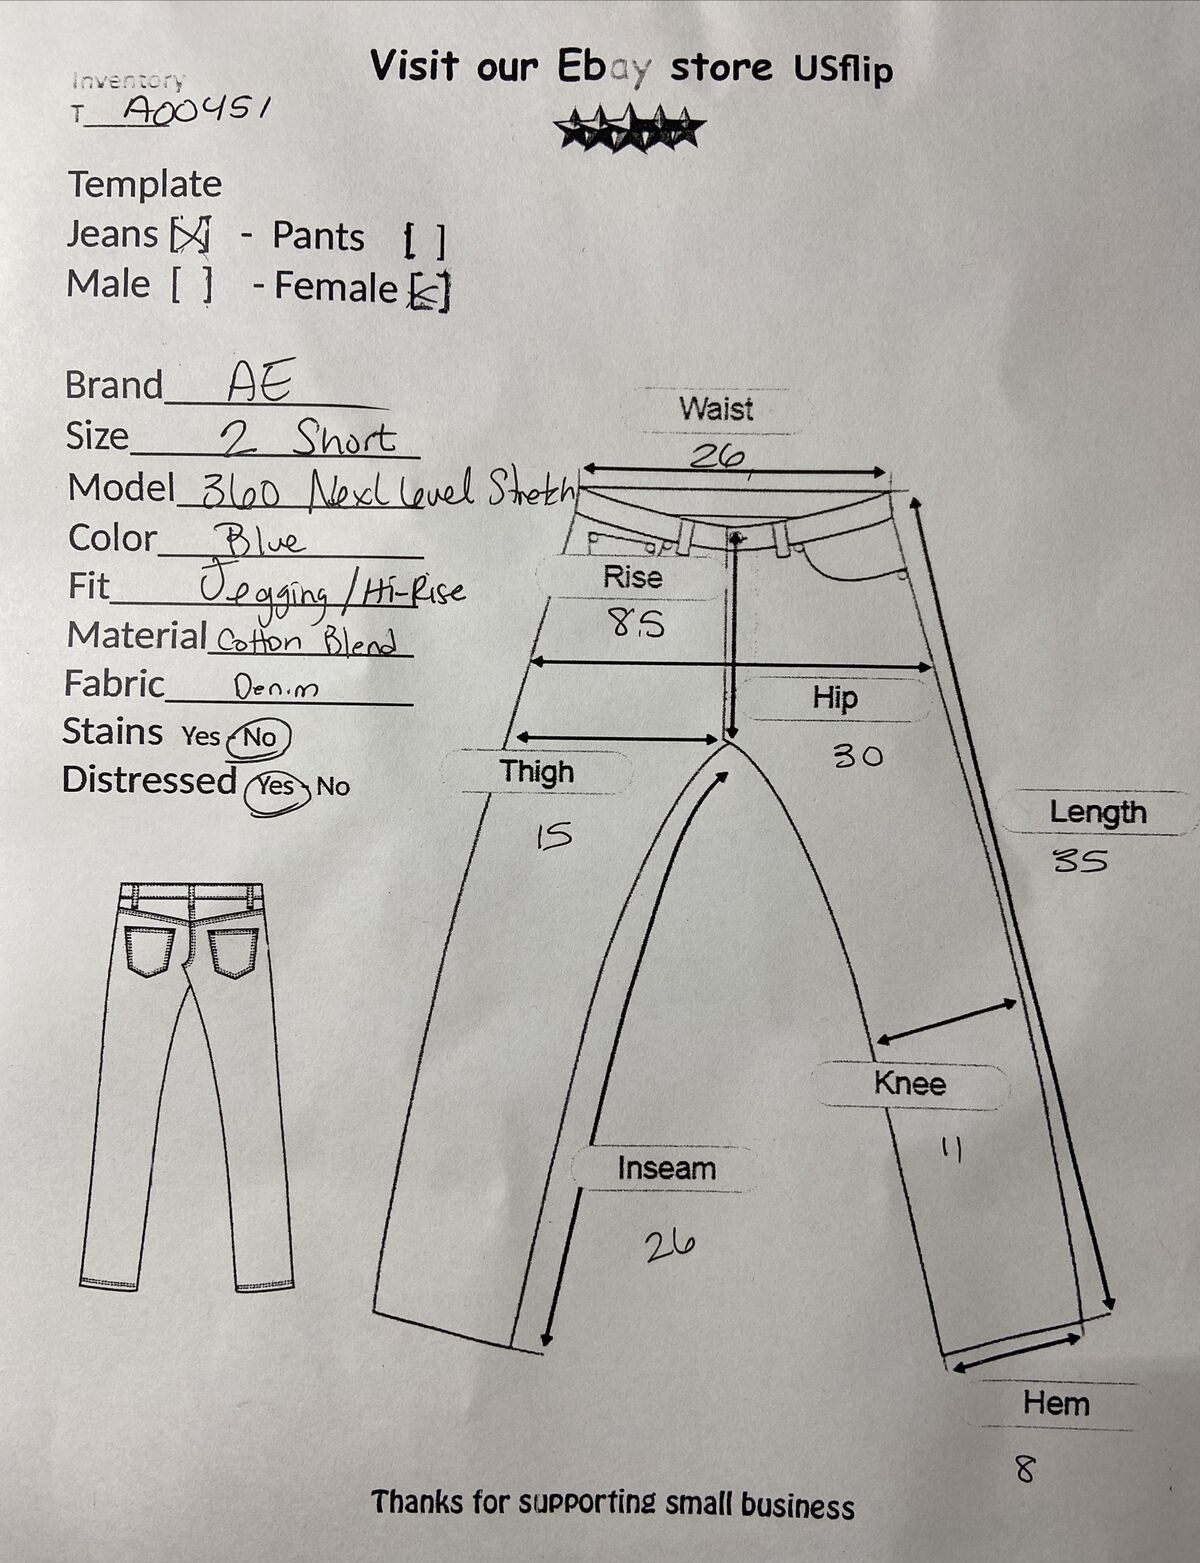 Visit our Ebay store USflip
Inventory
T A00451
Template
Jeans [X] - Pants [ ]
Male [ ] - Female [X]
Brand AE
Size 2 Short
Model 360 Next Level Stretch
Color Blue
Fit Jegging/Hi-Rise
Material Cotton Blend
Fabric Denim
Stains Yes No
Distressed Yes No
Waist
26
Rise
8.5
Hip
30
Thigh
15
Length
35
Knee
11
Inseam
26
Hem
8
Thanks for supporting small business